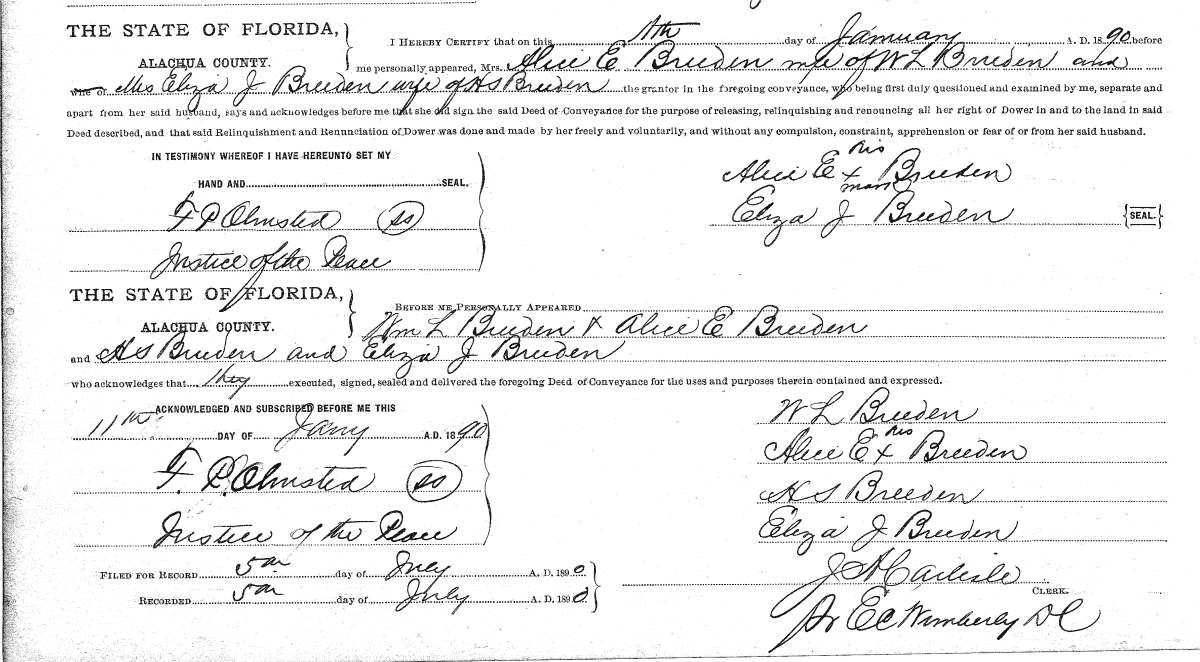 THE STATE OF FLORIDA,
ALACHUA COUNTY.
I HEREBY CERTIFY that on this 11th day of January A. D. 1890 before
me personally appeared, Mrs. Alice E Breeden wife of W L Breeden and
wife of Mrs Eliza J Breeden wife of H S Breeden the grantor in the foregoing conveyance, who being first duly questioned and examined by me, separate and
apart from her said husband, says and acknowledges before me that she did sign the said Deed of Conveyance for the purpose of releasing, relinquishing and renouncing all her right of Dower in and to the land in said
Deed described, and that said Relinquishment and Renunciation of Dower was done and made by her freely and voluntarily, and without any compulsion, constraint, apprehension or fear of or from her said husband.
IN TESTIMONY WHEREOF I HAVE HEREUNTO SET MY
HAND AND SEAL.
F P Olmsted
Justice of the Peace
his
Alice E x Breeden
mark
Eliza J Breeden {SEAL.}
THE STATE OF FLORIDA,
ALACHUA COUNTY.
BEFORE ME PERSONALLY APPEARED
Wm L Breeden & Alice E Breeden
and H S Breeden and Eliza J Breeden
who acknowledges that they executed, signed, sealed and delivered the foregoing Deed of Conveyance for the uses and purposes therein contained and expressed.
ACKNOWLEDGED AND SUBSCRIBED BEFORE ME THIS
11th DAY OF Jany A.D. 1890
F. P. Olmsted
Justice of the Peace
W L Breeden
his
Alice E x Breeden
H S Breeden
Eliza J Breeden
FILED FOR RECORD 5th day of July A. D. 1890
RECORDED 5th day of July A. D. 1890
J A Carlisle
CLERK.
Pr E C Wimberly DC